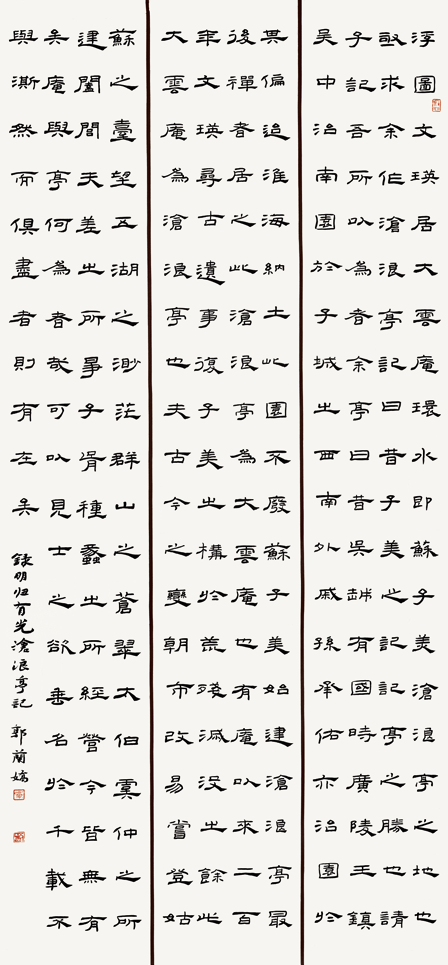 浮圖文瑛居大雲庵環水即蘇子美滄浪亭之地也
亟求余作滄浪亭記曰昔子美之記記亭之勝也請
子記吾所以為者余亭曰昔吳越有國時廣陵王鎮
吳中治南園於子城之西南外戚孫承佑亦治園於
其偏迨淮海納土此園不廢蘇子美始建滄浪亭最
後禪者居之此滄浪亭為大雲庵也有庵以來二百
年文瑛尋古遺事復子美之構於荒殘滅沒之餘此
大雲庵為滄浪亭也夫古今之變朝市改易嘗登姑
蘇之臺望五湖之渺茫群山之蒼翠太伯虞仲之所
建闔閭夫差之所爭子胥種蠡之所經營今皆無有
矣庵與亭何為者哉可以見士之欲垂名於千載不
與澌然而俱盡者則有在矣
錄明归有光滄浪亭記 郭蘭